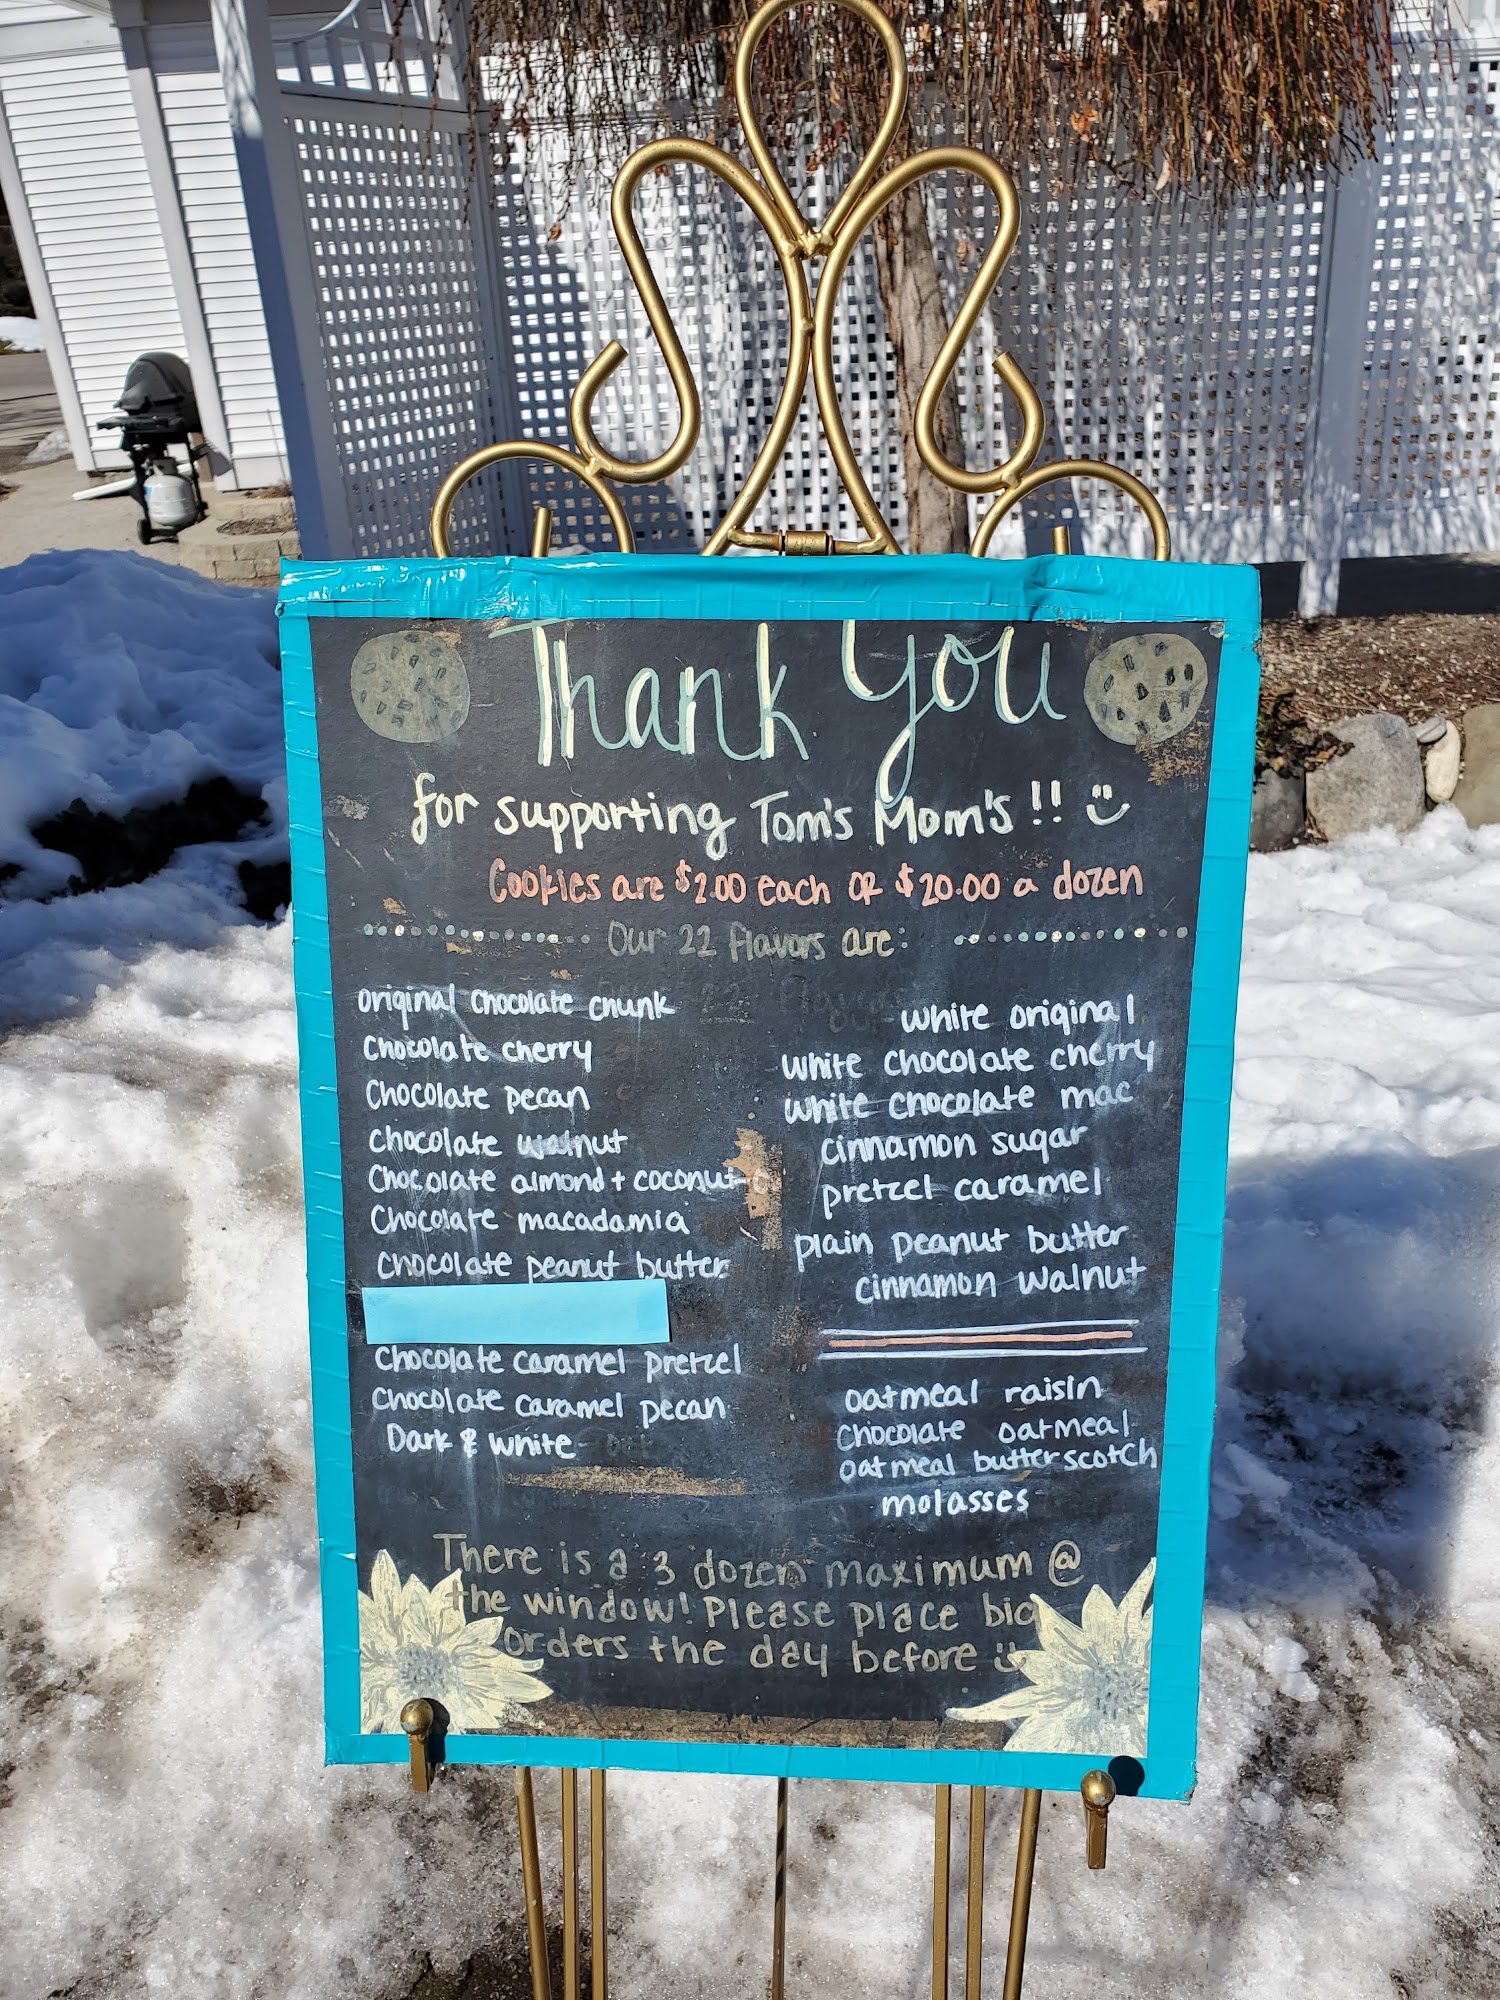 Thank You
for supporting Tom's Mom's!!
Cookies are $2.00 each or $20.00 a dozen
Our 22 flavors are:
original chocolate chunk
Chocolate cherry
Chocolate pecan
chocolate walnut
Chocolate almond + coconut
Chocolate macadamia
chocolate peanut butter
Chocolate caramel pretzel
Chocolate caramel pecan
Dark & white
white original
white chocolate cherry
white chocolate mac
cinnamon sugar
pretzel caramel
plain peanut butter
cinnamon walnut
oatmeal raisin
chocolate oatmeal
oatmeal butterscotch
molasses
There is a 3 dozen maximum @
the window! Please place big
orders the day before